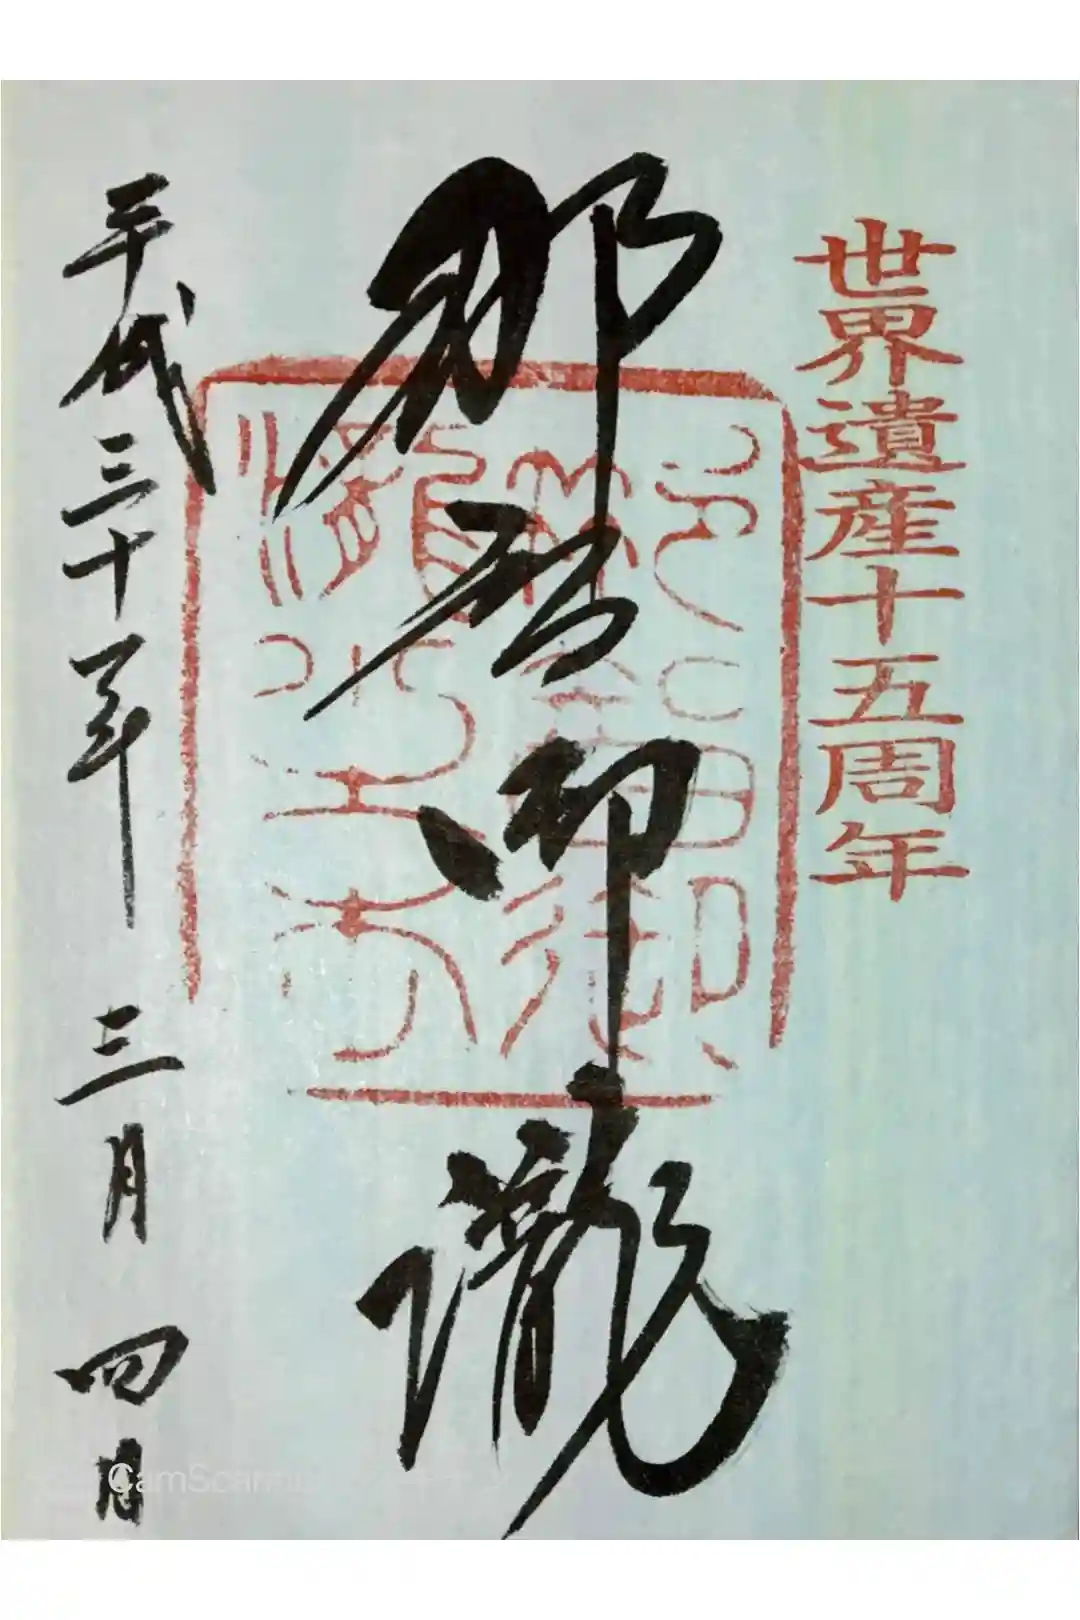 世界遺産十五周年
那智御瀧
平成三十一年三月四日
CamScanner